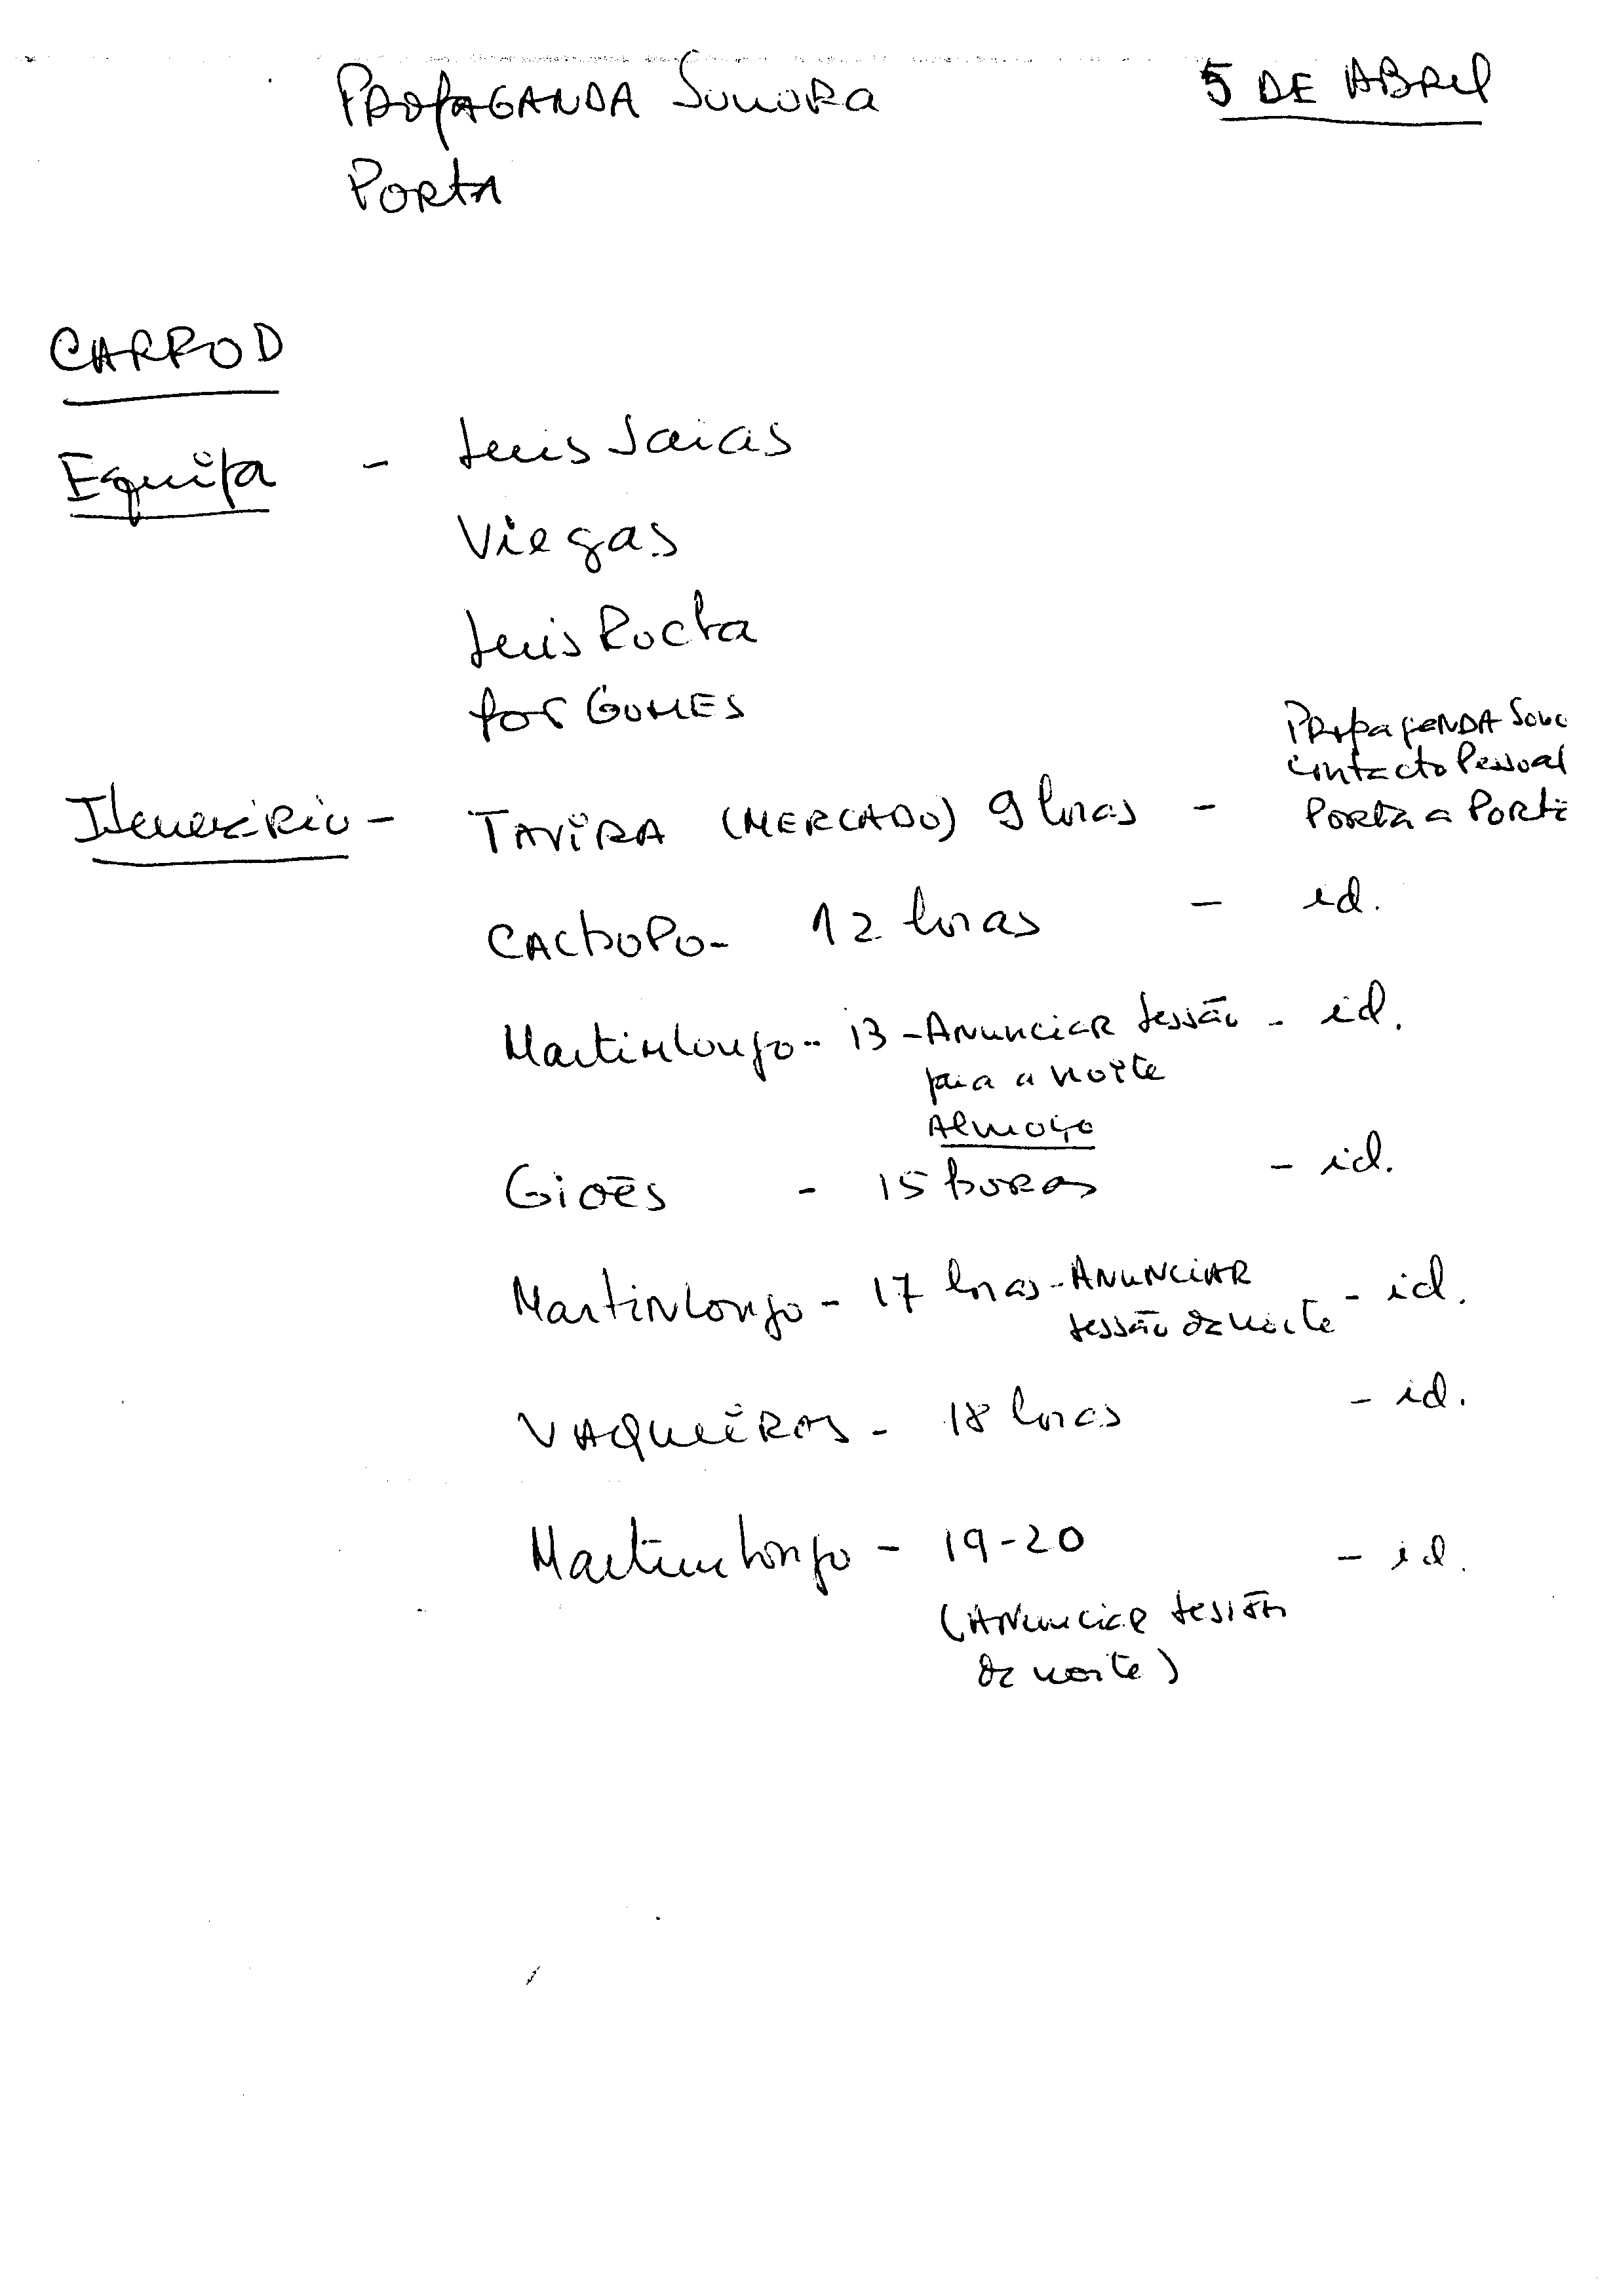 PROPAGANDA SONORA
5 DE ABRIL
PORTA
CARRO D
Equipa - Luis Saias
Viegas
Luis Rocha
GOMES
Itenerário - TAVIRA (MERCADO) 9 horas -
PROPAGENDA Sono
Contacto Pessoal
PORTA a PORTA
CACHOPO - 12 horas - id.
Martimlongo - 13 - ANUNCIAR sessão - id.
para a noite
Almoço
Giões - 15 horas - id.
Martinlongo - 17 horas - ANUNCIAR - id.
sessão da noite
VAQUEIROS - 18 horas - id.
Martimlongo - 19-20 - id.
(ANUNCIAR sessão
da noite)